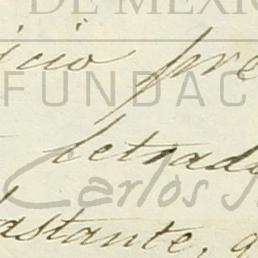 DE MÉXIC
icio pre
FUNDAC
letrado
Carlos S
astante, q